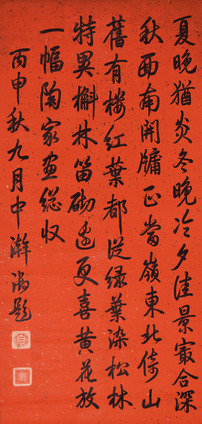 夏晚猶炎冬晚冷夕佳景最合深
秋西南開牖正當嶺東北倚山
舊有樓紅葉都從綠葉染松林
特異槲林笛砌邊更喜黃花放
一幅陶家畫總收
丙申秋九月中澣御題